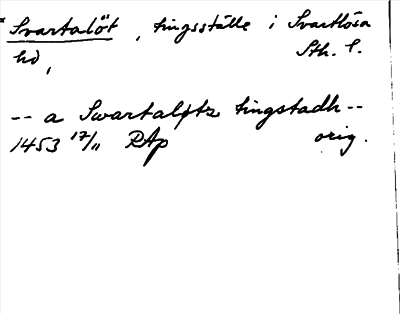 * Svartalöt, tingsställe i Svartlösa
hd, Sth. l.
-- a Swartaløtz tingstadh --
1453 17/11 RAp orig.